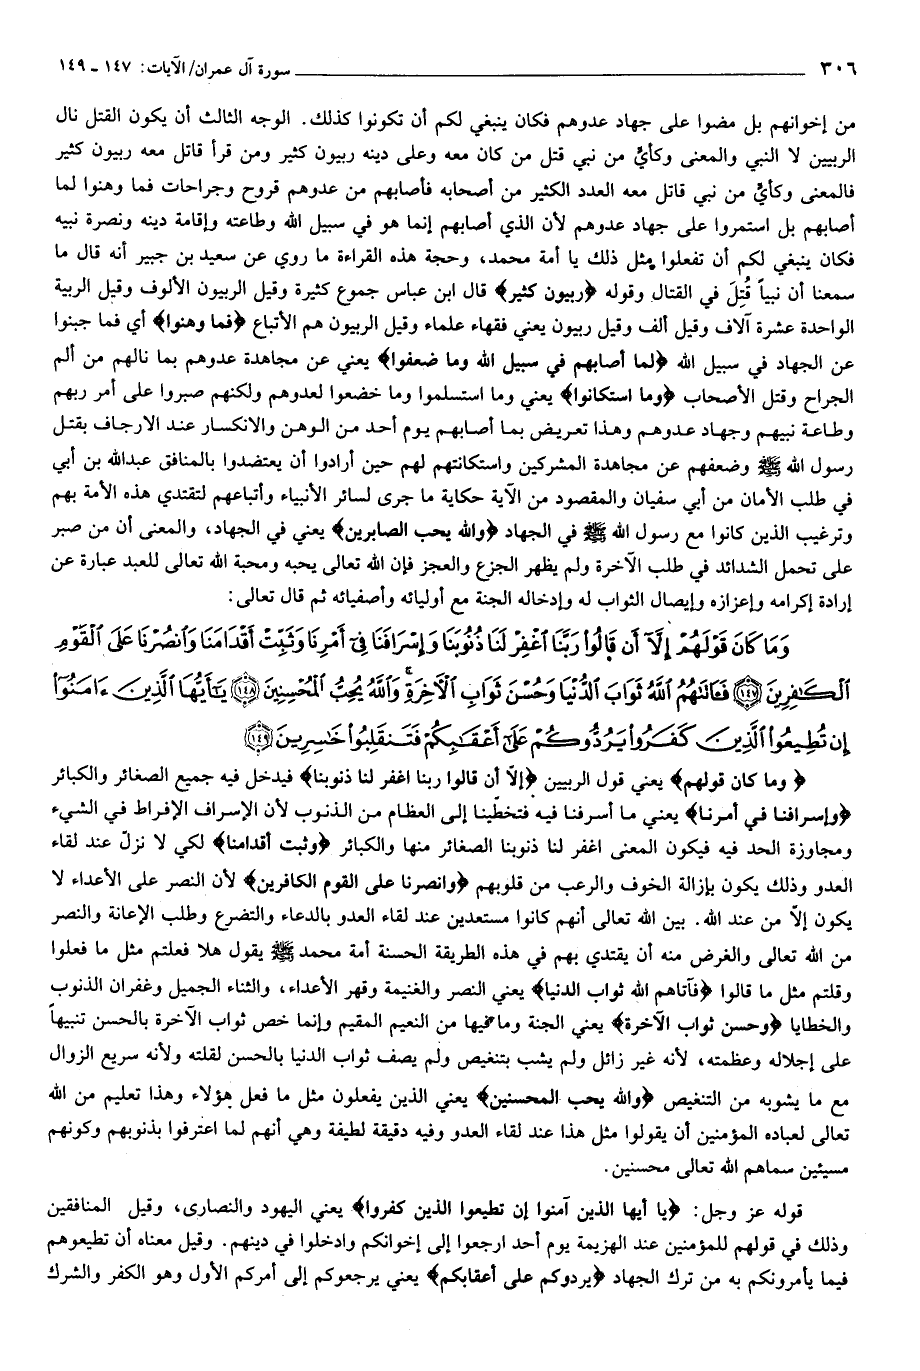 ٣٠٦ سورة آل عمران/ الآيات: ١٤٧ - ١٤٩
من إخوانهم بل مضوا على جهاد عدوهم فكان ينبغي لكم أن تكونوا كذلك. الوجه الثالث أن يكون القتل نال
الربيين لا النبي والمعنى وكأيٍّ من نبي قتل من كان معه وعلى دينه ربيون كثير ومن قرأ قاتل معه ربيون كثير
فالمعنى وكأيٍّ من نبي قاتل معه العدد الكثير من أصحابه فأصابهم من عدوهم قروح وجراحات فما وهنوا لما
أصابهم بل استمروا على جهاد عدوهم لأن الذي أصابهم إنما هو في سبيل الله وطاعته وإقامة دينه ونصرة نبيه
فكان ينبغي لكم أن تفعلوا مثل ذلك يا أمة محمد، وحجة هذه القراءة ما روي عن سعيد بن جبير أنه قال ما
سمعنا أن نبياً قُتِلَ في القتال وقوله ﴿ربيون كثير﴾ قال ابن عباس جموع كثيرة وقيل الربيون الألوف وقيل الربية
الواحدة عشرة آلاف وقيل ألف وقيل ربيون يعني فقهاء علماء وقيل الربيون هم الأتباع ﴿فما وهنوا﴾ أي فما جبنوا
عن الجهاد في سبيل الله ﴿لما أصابهم في سبيل الله وما ضعفوا﴾ يعني عن مجاهدة عدوهم بما نالهم من ألم
الجراح وقتل الأصحاب ﴿وما استكانوا﴾ يعني وما استسلموا وما خضعوا لعدوهم ولكنهم صبروا على أمر ربهم
وطاعة نبيهم وجهاد عدوهم وهذا تعريض بما أصابهم يوم أحد من الوهن والانكسار عند الارجاف بقتل
رسول الله ﷺ وضعفهم عن مجاهدة المشركين واستكانتهم لهم حين أرادوا أن يعتضدوا بالمنافق عبدالله بن أبي
في طلب الأمان من أبي سفيان والمقصود من الآية حكاية ما جرى لسائر الأنبياء وأتباعهم لتقتدي هذه الأمة بهم
وترغيب الذين كانوا مع رسول الله ﷺ في الجهاد ﴿والله يحب الصابرين﴾ يعني في الجهاد، والمعنى أن من صبر
على تحمل الشدائد في طلب الآخرة ولم يظهر الجزع والعجز فإن الله تعالى يحبه ومحبة الله تعالى للعبد عبارة عن
إرادة إكرامه وإعزازه وإيصال الثواب له وإدخاله الجنة مع أوليائه وأصفيائه ثم قال تعالى:
وَمَا كَانَ قَوْلَهُمْ إِلَّآ أَن قَالُوا۟ رَبَّنَا ٱغْفِرْ لَنَا ذُنُوبَنَا وَإِسْرَافَنَا فِىٓ أَمْرِنَا وَثَبِّتْ أَقْدَامَنَا وَٱنصُرْنَا عَلَى ٱلْقَوْمِ
ٱلْكَٰفِرِينَ ﴿١٤٧﴾ فَـَٔاتَىٰهُمُ ٱللَّهُ ثَوَابَ ٱلدُّنْيَا وَحُسْنَ ثَوَابِ ٱلْـَٔاخِرَةِ وَٱللَّهُ يُحِبُّ ٱلْمُحْسِنِينَ ﴿١٤٨﴾ يَـٰٓأَيُّهَا ٱلَّذِينَ ءَامَنُوٓا۟
إِن تُطِيعُوا۟ ٱلَّذِينَ كَفَرُوا۟ يَرُدُّوكُمْ عَلَىٰٓ أَعْقَـٰبِكُمْ فَتَنقَلِبُوا۟ خَـٰسِرِينَ ﴿١٤٩﴾
﴿ وما كان قولهم﴾ يعني قول الربيين ﴿إلّا أن قالوا ربنا اغفر لنا ذنوبنا﴾ فيدخل فيه جميع الصغائر والكبائر
﴿وإسرافنا في أمرنا﴾ يعني ما أسرفنا فيه فتخطّينا إلى العظام من الذنوب لأن الإسراف الإفراط في الشيء
ومجاوزة الحد فيه فيكون المعنى اغفر لنا ذنوبنا الصغائر منها والكبائر ﴿وثبت أقدامنا﴾ لكي لا نزلّ عند لقاء
العدو وذلك يكون بإزالة الخوف والرعب من قلوبهم ﴿وانصرنا على القوم الكافرين﴾ لأن النصر على الأعداء لا
يكون إلّا من عند الله. بين الله تعالى أنهم كانوا مستعدين عند لقاء العدو بالدعاء والتضرع وطلب الإعانة والنصر
من الله تعالى والغرض منه أن يقتدي بهم في هذه الطريقة الحسنة أمة محمد ﷺ يقول هلا فعلتم مثل ما فعلوا
وقلتم مثل ما قالوا ﴿فآتاهم الله ثواب الدنيا﴾ يعني النصر والغنيمة وقهر الأعداء، والثناء الجميل وغفران الذنوب
والخطايا ﴿وحسن ثواب الآخرة﴾ يعني الجنة وما فيها من النعيم المقيم وإنما خص ثواب الآخرة بالحسن تنبيهاً
على إجلاله وعظمته، لأنه غير زائل ولم يشب بتنغيص ولم يصف ثواب الدنيا بالحسن لقلته ولأنه سريع الزوال
مع ما يشوبه من التنغيص ﴿والله يحب المحسنين﴾ يعني الذين يفعلون مثل ما فعل هؤلاء وهذا تعليم من الله
تعالى لعباده المؤمنين أن يقولوا مثل هذا عند لقاء العدو وفيه دقيقة لطيفة وهي أنهم لما اعترفوا بذنوبهم وكونهم
مسيئين سماهم الله تعالى محسنين.
قوله عز وجل: ﴿يا أيها الذين آمنوا إن تطيعوا الذين كفروا﴾ يعني اليهود والنصارى، وقيل المنافقين
وذلك في قولهم للمؤمنين عند الهزيمة يوم أحد ارجعوا إلى إخوانكم وادخلوا في دينهم. وقيل معناه أن تطيعوهم
فيما يأمرونكم به من ترك الجهاد ﴿يردوكم على أعقابكم﴾ يعني يرجعوكم إلى أمركم الأول وهو الكفر والشرك